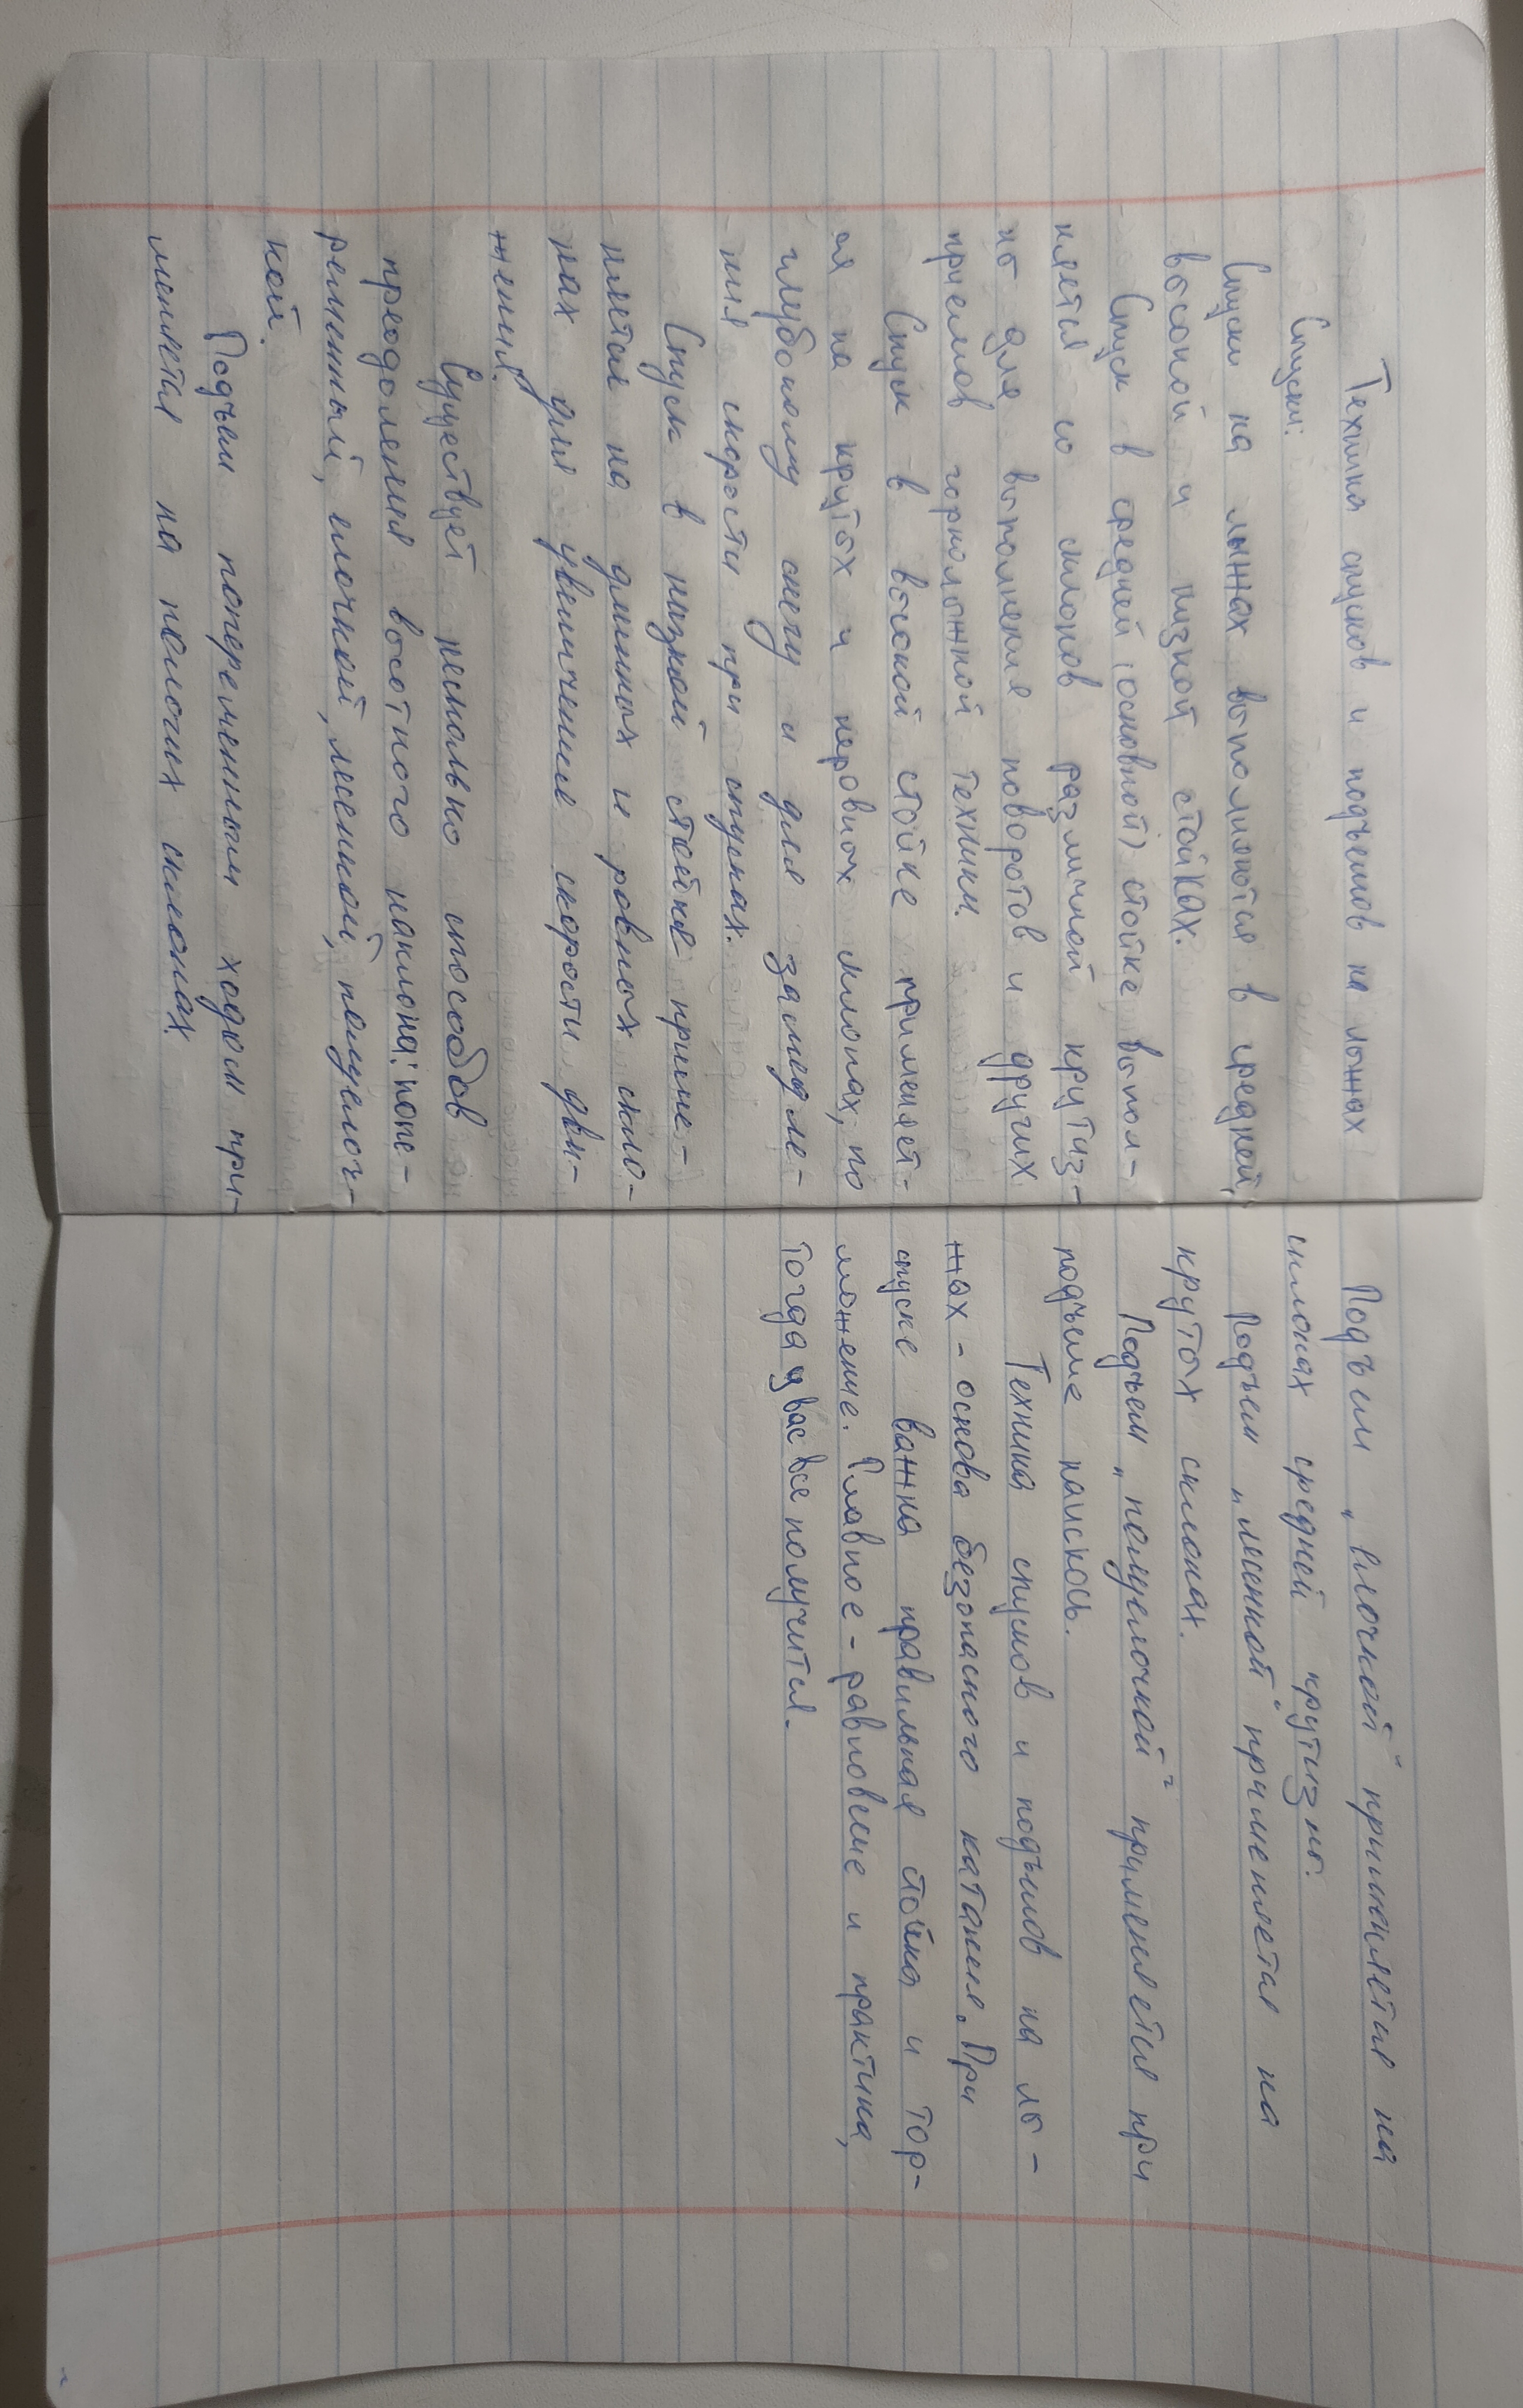 Техника спусков и подъемов на лыжах
Спуски:
Спуски на лыжах выполняются в средней,
высокой и низкой стойках.
Спуск в средней (основной) стойке выпол-
няется со склонов различной крутиз-
ны для выполнения поворотов и других
приемов горнолыжной техники.
Спуск в высокой стойке применяет-
ся на крутых и неровных склонах, по
глубокому снегу и для замедле-
ния скорости при спусках.
Спуск в низкой стойке приме-
няется на длинных и ровных скло-
нах для увеличение скорости дви-
жения.
Существует несколько способов
преодоления высотного наклона: попе-
ременный, елочкой, лесенкой, полуелоч-
кой.
Подъем попеременным ходом при-
меняется на пологих склонах
Подъем „елочкой" применяется на
склонах средней крутизны.
Подъем „лесенкой" применяется на
крутых склонах.
Подъем „полуелочкой" применяется при
подъеме наискось.
Техника спусков и подъемов на лы-
жах - основа безопасного катания. При
спуске важна правильная стойка и тор-
можение. Главное - равновесие и практика,
тогда у вас все получится.